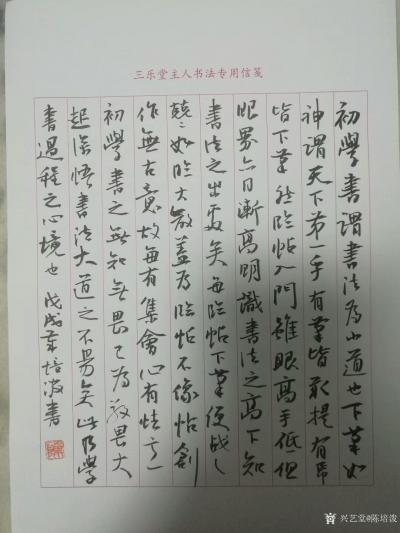 三乐堂主人书法专用信笺
初學書謂書法為小道也下筆如
神謂天下第一手有筆皆敢提有帋
皆下筆然臨帖入門雖眼高手低但
眼界亦日漸高明識書法之高下知
書法之出處矣每臨帖下筆便戰々
兢々如臨大敵蓋為臨帖不像帖創
作無古意故每有集會心有怯意
初學書之無知無畏已為敬畏大
起深悟書法大道之不易矣此乃學
書過程之心境也 戊戌年培波書
兴艺堂@陈培泼